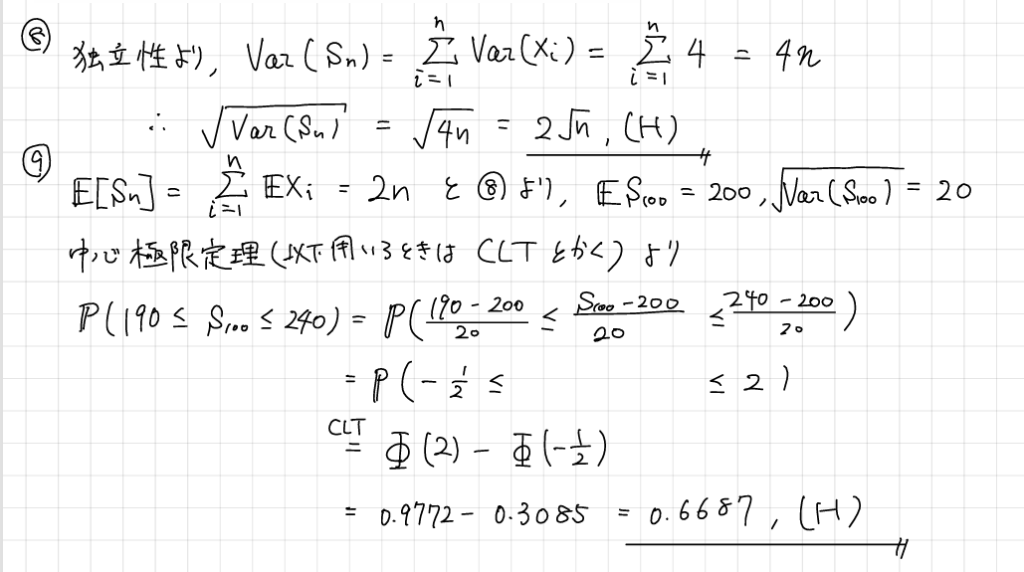 ⑧ 独立性より, Var(Sn) = Σ_{i=1}^{n} Var(Xi) = Σ_{i=1}^{n} 4 = 4n
∴ √Var(Sn) = √4n = 2√n, (H)
⑨ E[Sn] = Σ_{i=1}^{n} EXi = 2n と⑧より, ES100 = 200, √Var(S100) = 20
中心極限定理(以下用いるときは CLT とかく)より
P(190 ≤ S100 ≤ 240) = P((190 - 200)/20 ≤ (S100 - 200)/20 ≤ (240 - 200)/20)
= P(- 1/2 ≤ ≤ 2)
CLT= Φ(2) - Φ(-1/2)
= 0.9772 - 0.3085 = 0.6687, (H)